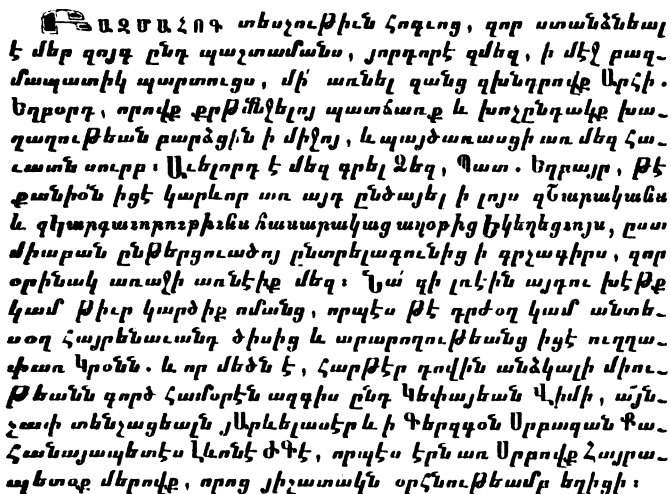 ԲԱԶՄԱՀՈԳ տեսչութիւն հոգւոց, զոր ստանձնեալ
է մեր զոյգ ընդ պաշտամանս, յորդորէ զմեզ, ի մէջ բազ-
մապատիկ պարտուցս, մի՛ առնել զանց զխնդրովք Արհի.
Եղբօրդ, որովք քրթմնջելոյ պատճառք և խոչընդակք խա-
ղաղութեան բարձցին ի միջոյ, և պայծառասցի առ մեզ Հա-
ւատն սուրբ։ Աւելորդ է մեզ գրել Ձեզ, Պատ. Եղբայր, թէ
քանիօ՛ն իցէ կարևոր առ այդ ընծայել ի լոյս զՇարականս
և զԿարգաւորութիւնս հասարակաց աղօթից Եկեղեցւոյս, ըստ
միաբան ընթերցուածոյ ընտրելագունից ի գրչագիրս, զոր
օրինակ առաջի առնէիք մեզ։ Նա՛ զի լռէին այդու խէթք
կամ թիւր կարծիք ոմանց, որպէս թէ դրժօղ կամ անտե-
սօղ Հայրենաւանդ ծիսից և արարողութեանց իցէ ուղղա-
փառ Կրօնն. և որ մեծն է, հարթէր դովին անձկալի միու-
թեանն գործ համօրէն ազգիս ընդ Կեփայեան Վիմի, այն-
չափ տենչացեալն յԱրևելասէր և ի Գերզգօն Սրբազան Քա-
հանայապետէս Լևոնէ ԺԳէ, որպէս էրն առ Սրբովք Հայրա-
պետօք մերովք, որոց յիշատակն օրհնութեամբ եղիցի։